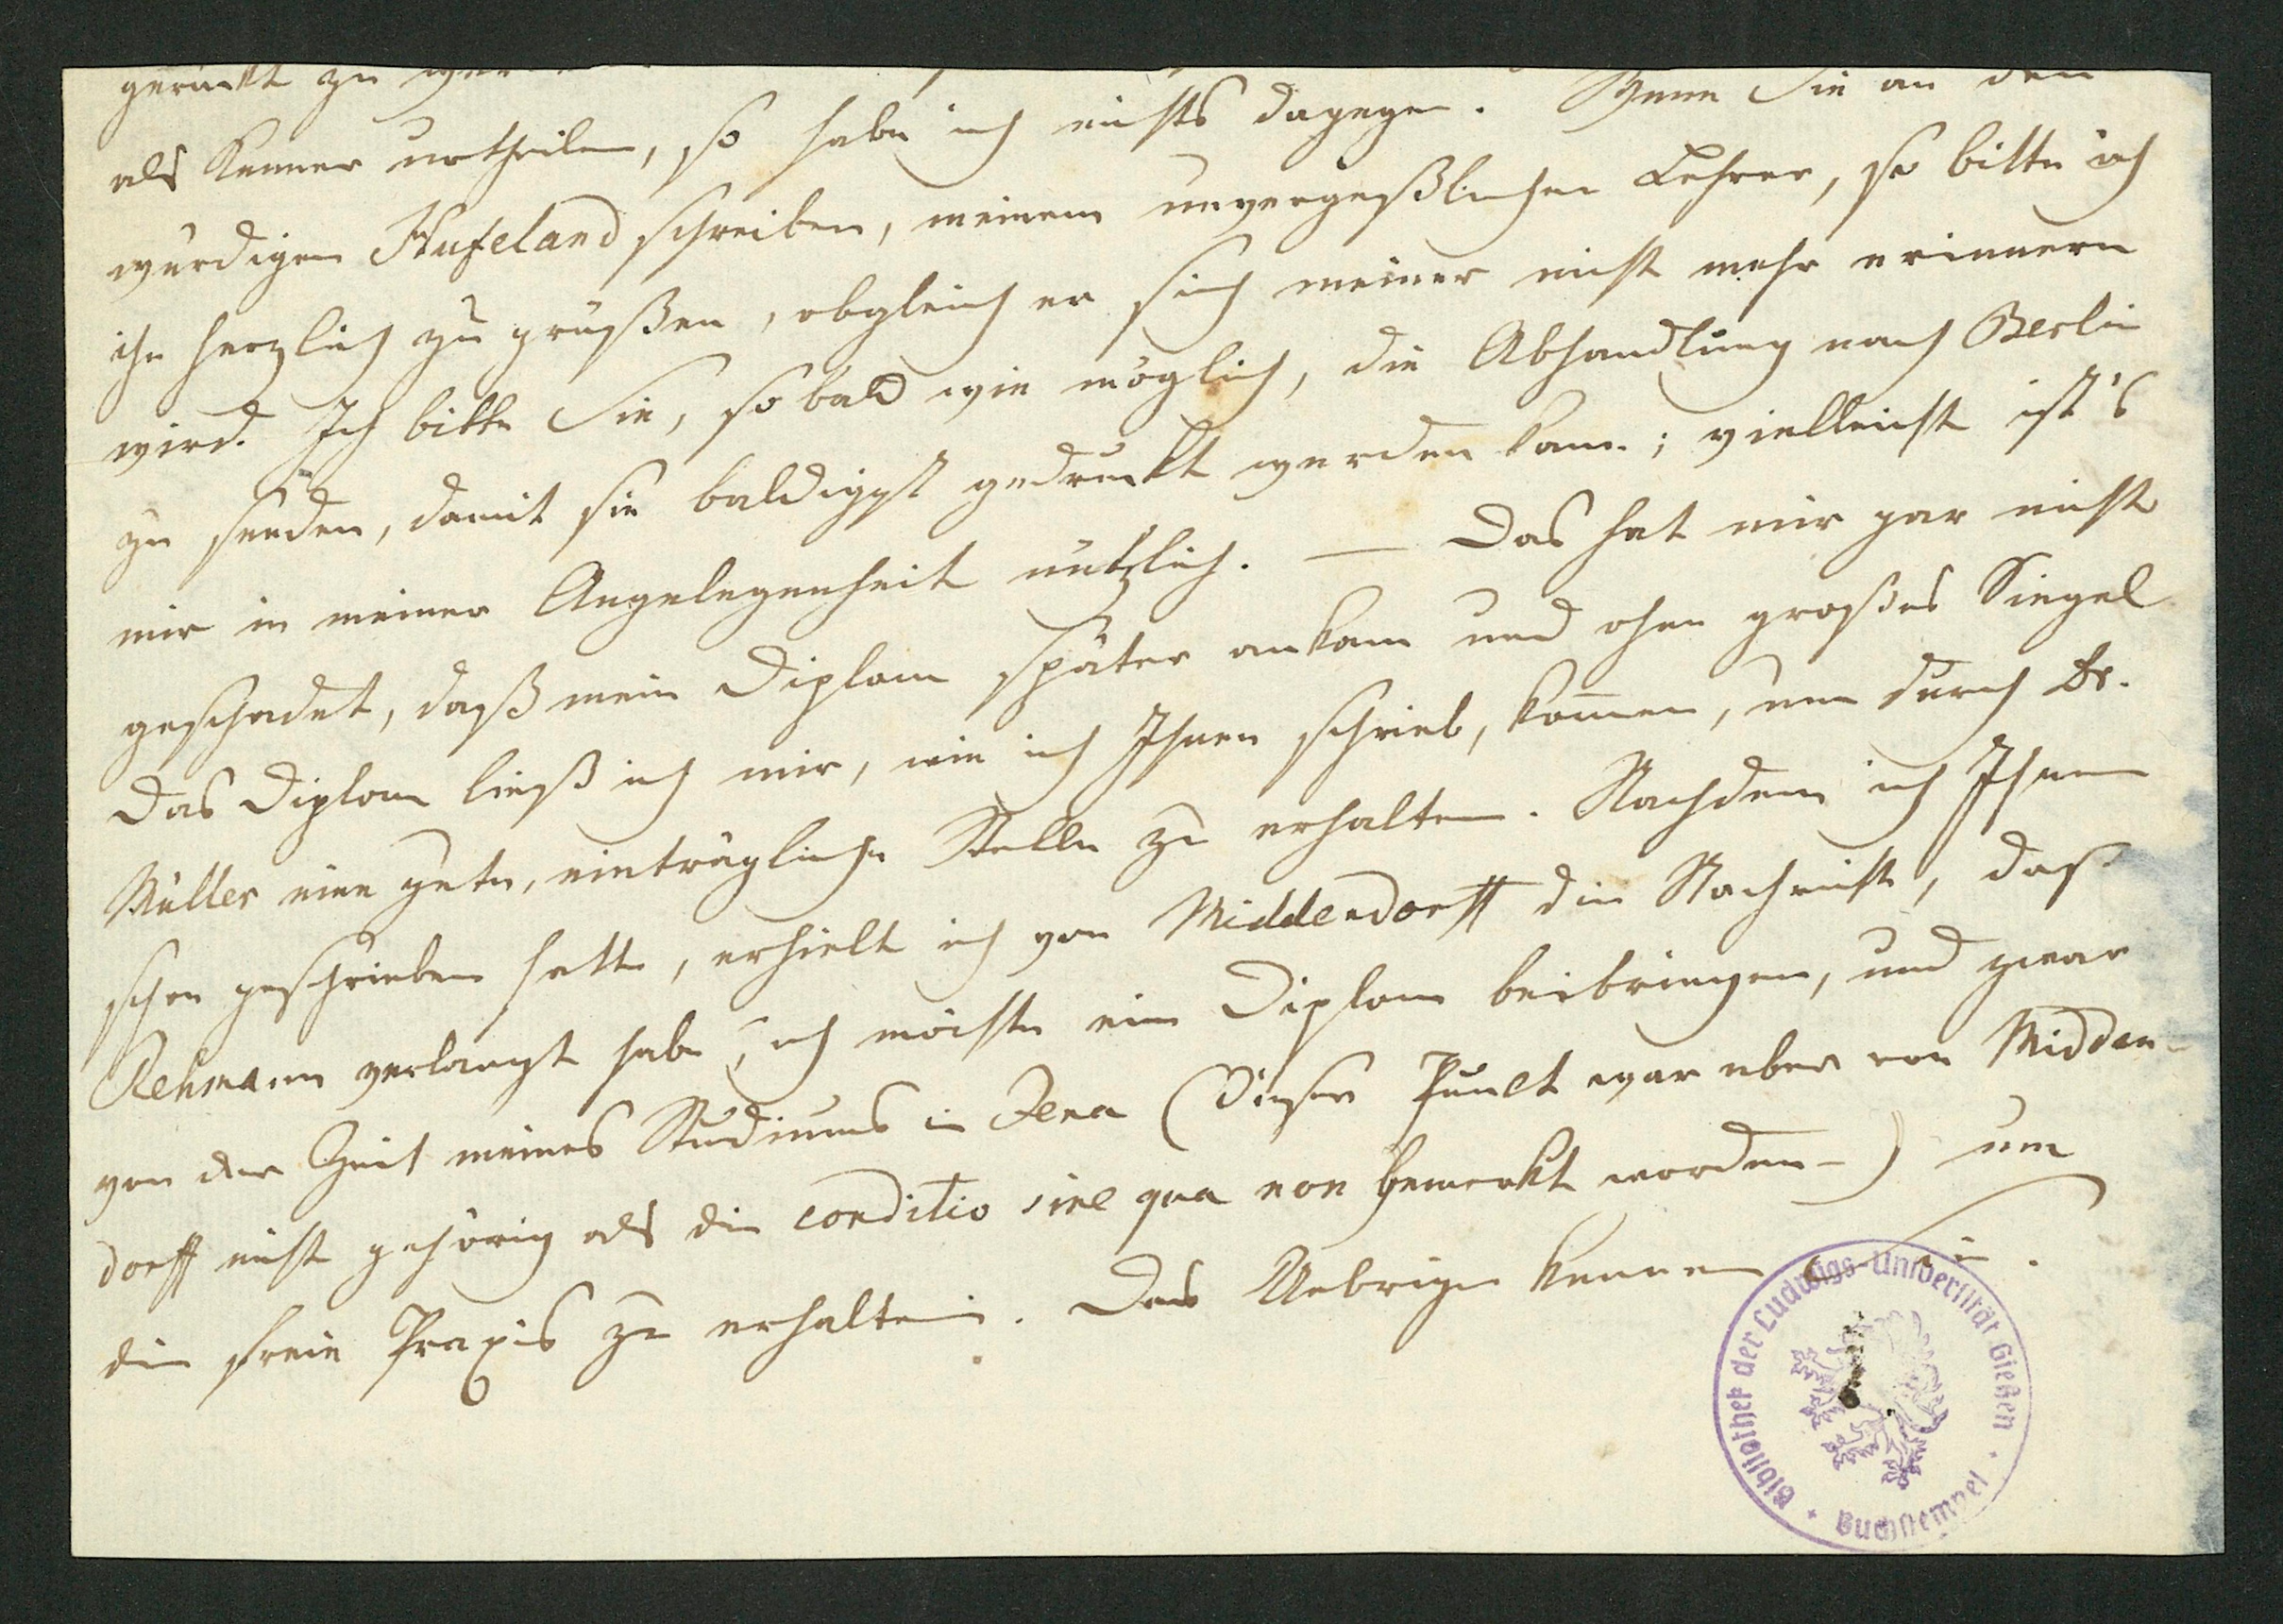 gerückt zu
als Kenner urtheilen, so habe ich nichts dagegen. Wenn Sie an den
würdigen Hufeland schreiben, meinem unvergeßlichen Lehrer, so bitte ich
ihn herzlich zu grüßen, obgleich er sich meiner nicht mehr erinnern
wird. Ich bitte Sie, so bald wie möglich, die Abhandlung nach Berlin
zu senden, damit sie baldigst gedruckt werden kann; vielleicht ist's
mir in meiner Angelegenheit nützlich. — Das hat mir gar nicht
geschadet, daß mein Diplom später ankam und ohne großes Siegel
Das Diplom ließ ich mir, wie ich Ihnen schrieb, kom̅en, um durch Dr.
Müller eine gute, einträgliche Stelle zu erhalten. Nachdem ich Ihnen
schon geschrieben hatte, erhielt ich von Middendorff die Nachricht, daß
Rehmann verlangt habe, ich möchte ein Diplom beibringen, und zwar
von der Zeit meines Studiums in Jena (dieser Punct war aber von Midden-
dorff nicht gehörig als die conditio sine qua non bemerkt worden-) um
die freie Praxis zu erhalten. Das Uebrige kennen Sie.
Bibliothek der Ludwigs-Universität Gießen
Buchstempel